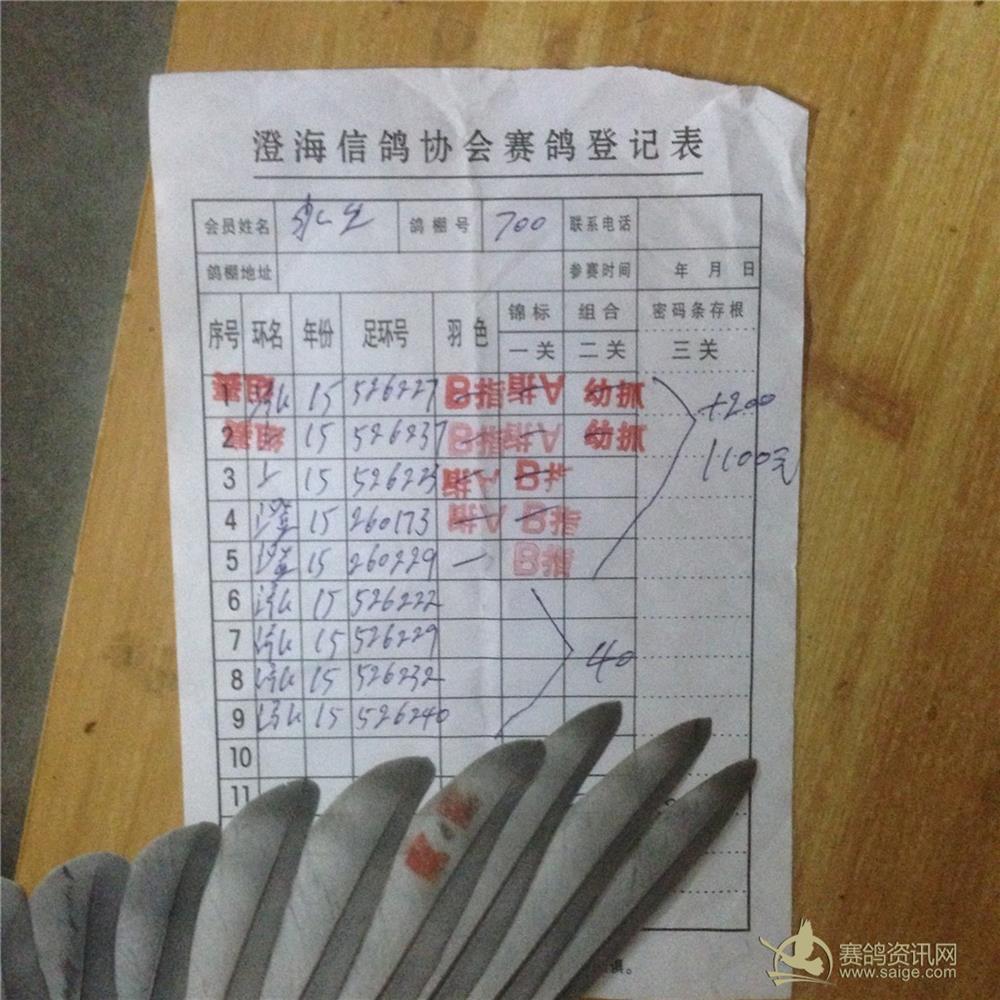 澄海信鸽协会赛鸽登记表
会员姓名 鸽棚号 700 联系电话
鸽棚地址 参赛时间 年 月 日
序号 环名 年份 足环号 羽色 锦标 组合 密码条存根
一关 二关 三关
1 15 526227 B指 指A 幼抓
2 15 526237 B指 指A 幼抓
+200
1100元
3 15 526223 指A B指
4 澄 15 260173 指A B指
5 澄 15 260229 B指
6 15 526222
7 15 526229
40
8 15 526232
9 15 526240
10
11
赛鸽资讯网
www.saige.com